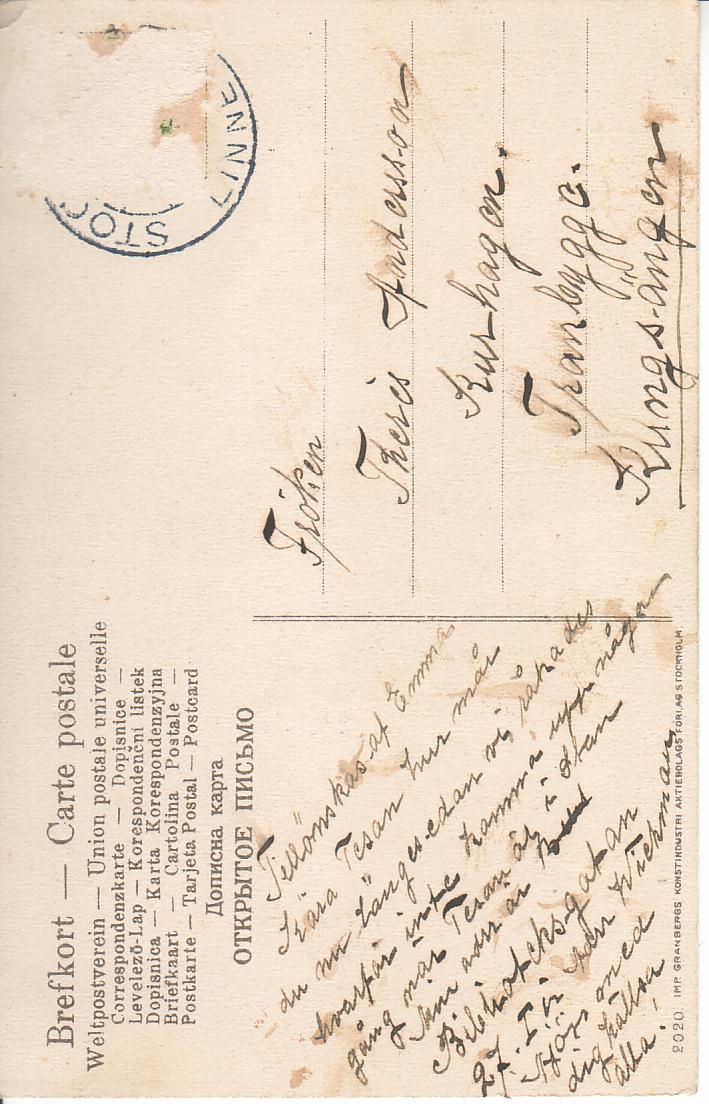 Brefkort — Carte postale
Weltpostverein — Union postale universelle
Correspondenzkarte — Dopisnice —
Levelező-Lap — Korespondenční lístek
Dopisnica — Karta Korespondenzyjna
Briefkaart — Cartolina Postale —
Postkarte — Tarjeta Postal — Postcard
Дописна карта
ОТКРЫТОЕ ПИСЬМО
STOC
LINNE
Tillönskas af Emma
Kära Tesan hur mår
du nu länge sedan vi råkades
hvarför inte komma upp någon
gång när Tesan är i stan
Min adr är
Biblioteksgatan
27. I ö Adr Wichman
med
dig hälsa
alla!
Fröken
Theres Andersson
Kurhagen.
Tranbygge.
Kungsängen
2020. IMP. GRANBERGS KONSTINDUSTRI AKTIEBOLAGS FÖRLAG STOCKHOLM